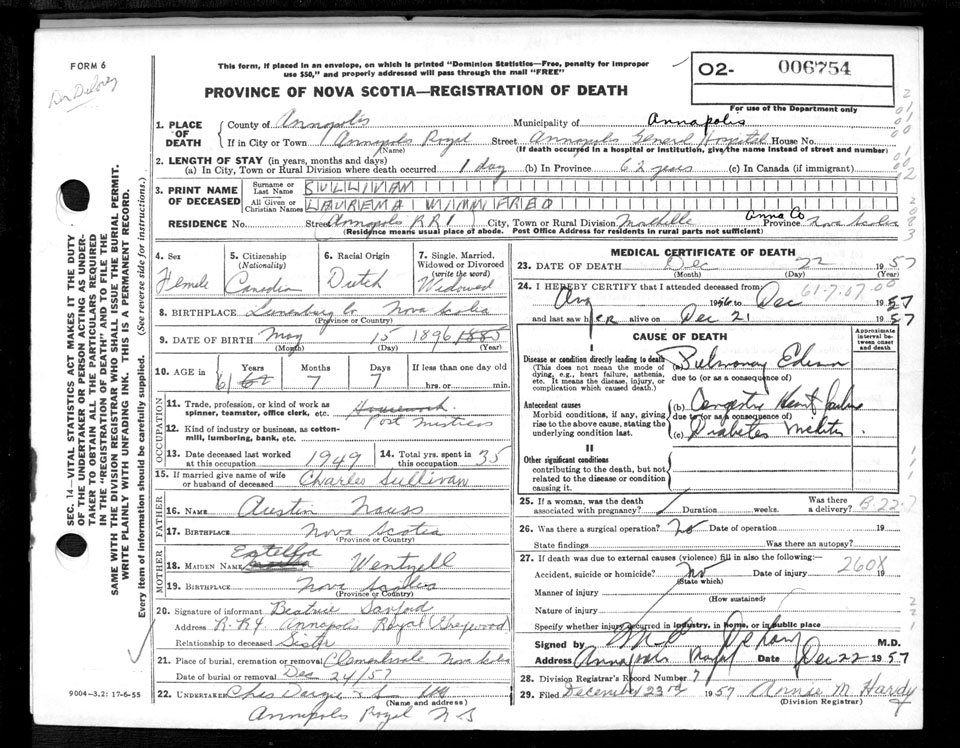 FORM 6
This form, if placed in an envelope, on which is printed "Dominion Statistics—Free, penalty for improper
use $50," and properly addressed will pass through the mail "FREE"
O2- 006754
PROVINCE OF NOVA SCOTIA—REGISTRATION OF DEATH
For use of the Department only
1. PLACE OF DEATH
County of Annapolis Municipality of Annapolis
If in City or Town Annapolis Royal Street Annapolis General Hospital House No.
(Name) (If death occurred in a hospital or institution, give the name instead of street and number)
2. LENGTH OF STAY (in years, months and days)
(a) In City, Town or Rural Division where death occurred 1 day (b) In Province 62 years (c) In Canada (if immigrant)
3. PRINT NAME OF DECEASED
Surname or Last Name SULLIVAN
All Given or Christian Names LAURENA WINNIFRED
RESIDENCE No. Street Annapolis RR1 City, Town or Rural Division Anna Co Province Nova Scotia
(Residence means usual place of abode. Post Office Address for residents in rural parts not sufficient)
4. Sex
Female
5. Citizenship
(Nationality)
Canadian
6. Racial Origin
Dutch
7. Single, Married,
Widowed or Divorced
(write the word)
Widowed
8. BIRTHPLACE Lunenburg Co Nova Scotia
(Province or Country)
9. DATE OF BIRTH May 15 1896 1885
(Month) (Day) (Year)
10. AGE in Years Months Days If less than one day
61 62 7 7 hrs. or min.
OCCUPATION
11. Trade, profession, or kind of work as
spinner, teamster, office clerk, etc. Housework
Post Mistress
12. Kind of industry or business, as cotton-
mill, lumbering, bank, etc.
13. Date deceased last worked
at this occupation 1949
14. Total yrs. spent in
this occupation 35
15. If married give name of wife
or husband of deceased Charles Sullivan
FATHER
16. Name Austin Nauss
17. Birthplace Nova Scotia
(Province or Country)
MOTHER
18. Maiden Name Wentzell
19. Birthplace Nova Scotia
(Province or Country)
20. Signature of informant Beatrice Sanford
Address R.R4 Annapolis Royal (Greywood)
Relationship to deceased Sister
21. Place of burial, cremation or removal Clementsvale Nova Scotia
Date of burial Dec 24/57
22. UNDERTAKER Chas
(Name and address)
Annapolis Royal N S
9004-3.2: 17-6-55
SEC. 14—VITAL STATISTICS ACT MAKES IT THE DUTY
OF THE UNDERTAKER OR PERSON ACTING AS UNDER-
TAKER TO OBTAIN ALL THE PARTICULARS REQUIRED
IN THE "REGISTRATION OF DEATH" AND TO FILE THE
SAME WITH THE DIVISION REGISTRAR WHO SHALL ISSUE THE BURIAL PERMIT.
WRITE PLAINLY WITH UNFADING INK. THIS IS A PERMANENT RECORD.
Every item of information should be carefully supplied. (See reverse side for instructions.)
MEDICAL CERTIFICATE OF DEATH
23. DATE OF DEATH Dec 22 1957
(Month) (Day) (Year)
24. I HEREBY CERTIFY that I attended deceased from 61-7-07.00
Aug 1956 to Dec 1957
and last saw her alive on Dec 21 1957
CAUSE OF DEATH
Approximate interval between onset and death
I
Disease or condition directly leading to death
(This does not mean the mode of dying, e.g., heart failure, asthenia, etc. It means the disease, injury, or complication which caused death.)
(a) Pulmonary Edema
due to (or as a consequence of)
Antecedent causes
Morbid conditions, if any, giving rise to the above cause, stating the underlying condition last.
(b) Congestive Heart Failure
due to (or as a consequence of)
(c) Diabetes Mellitus
II
Other significant conditions
contributing to the death, but not related to the disease or condition causing it.
25. If a woman, was the death
associated with pregnancy? Duration weeks. Was there a delivery? B-22-7
26. Was there a surgical operation? No Date of operation 19
State findings Was there an autopsy?
27. If death was due to external causes (violence) fill in also the following:—
260X
Accident, suicide or homicide? No Date of injury 19
(State which)
Manner of injury
(How sustained)
Nature of injury
Specify whether injury occurred in industry, in home, or in public place
Signed by M.D.
Address Annapolis Royal Date Dec 22 1957
28. Division Registrar's Record Number 7
29. Filed December 23rd 1957 Annie M. Hardy
(Division Registrar)